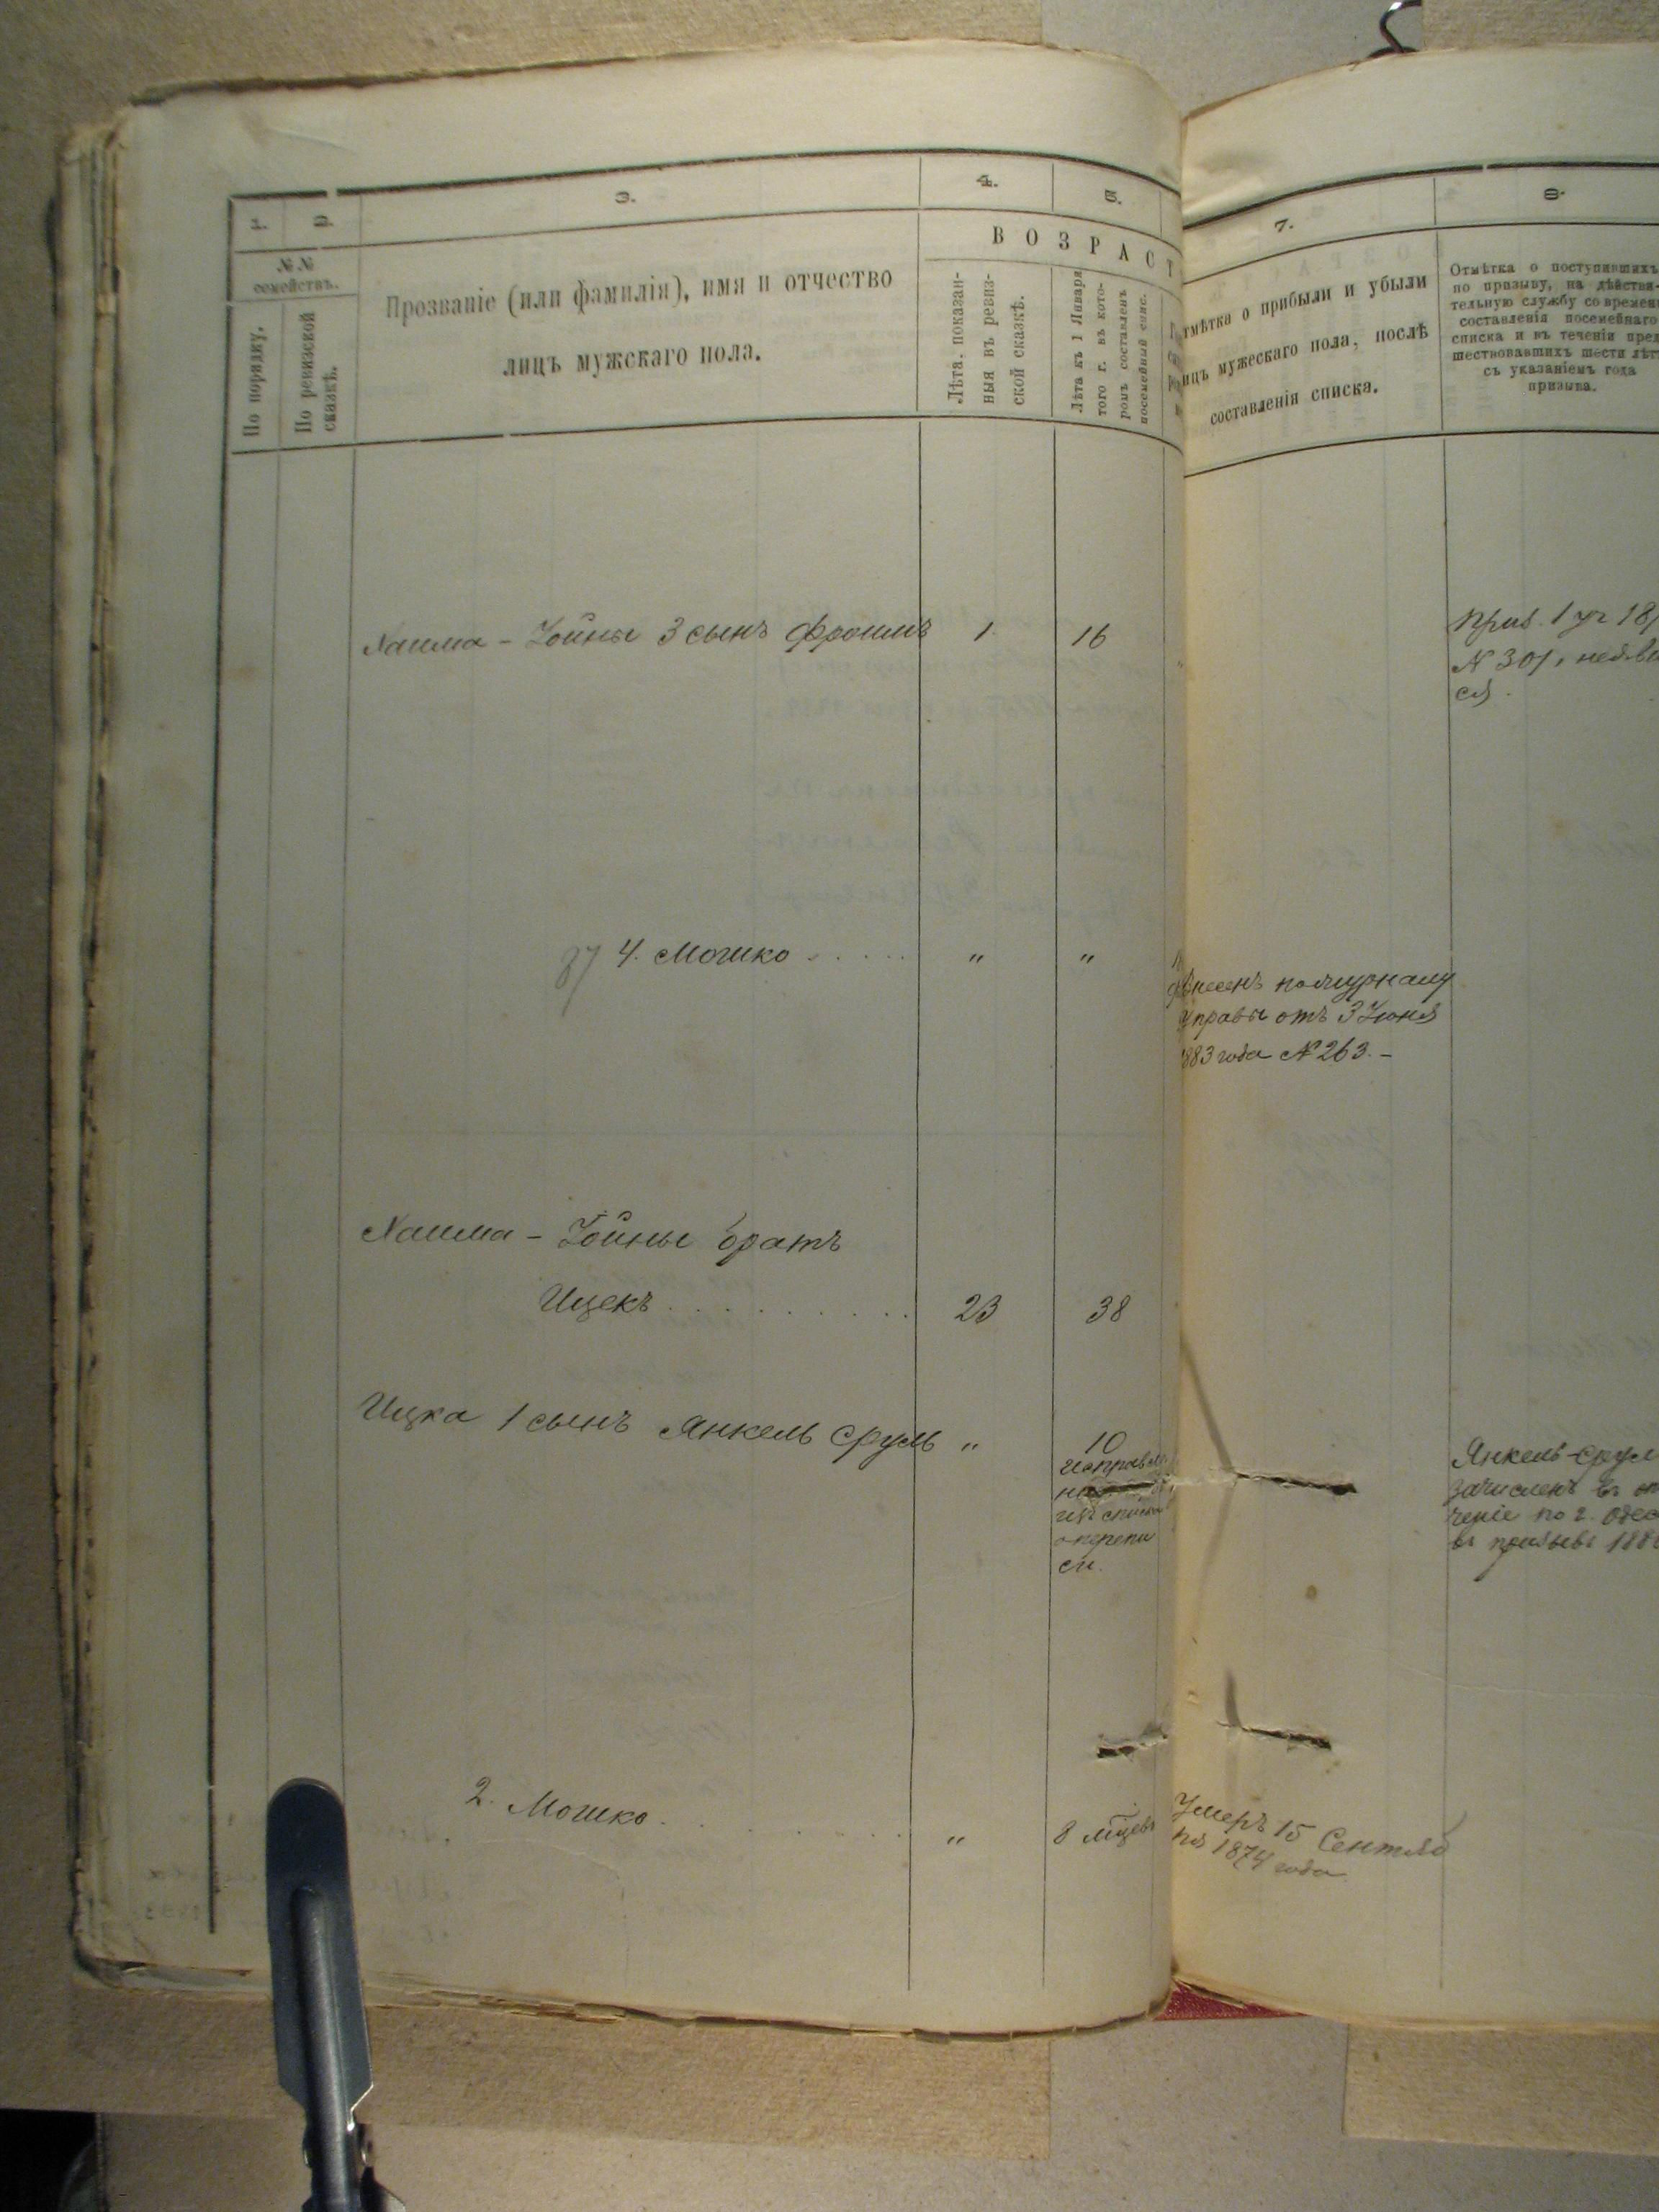 1.
2.
3.
4.
5.
№ №
семействъ.
По порядку.
По ревизской
сказкѣ.
Прозваніе (или фамилія), имя и отчество
лицъ мужскаго пола.
ВОЗРАСТ
Лѣта, показан-
ныя въ ревиз-
ской сказкѣ.
Лѣта къ 1 Января
того г. въ кото-
ромъ составленъ
посемейный спис.
Хаима - Іойны 3 сынъ Фроимъ 1 16
87 4. Мошко . . . . . „ „
Хаима - Іойны братъ
Ицекъ . . . . . . . . . 23 38
Ицка 1 сынъ Янкель Сруль „ 10
изъ списка
о перепи
си.
2. Мошко . . . . . . . „ 8 мѣцевъ
7.
8.
тмѣтка о прибыли и убыли
ицъ мужескаго пола, послѣ
составленія списка.
Отмѣтка о поступившихъ
по призыву, на дѣйстви-
тельную службу со времени
составленія посемейнаго
списка и въ теченіи пред
шествовавшихъ шести лѣт
съ указаніемъ года
призыва.
Приз. 1 уч 18
№ 301, неяви
ся.
Внесенъ по журналу
Управы отъ 3 Іюня
1883 года № 263. -
Янкель-Срул
зачисленъ въ оп
ченіе по г. Одес
въ призывъ 188
Умеръ 15 Сентяб
ря 1874 года